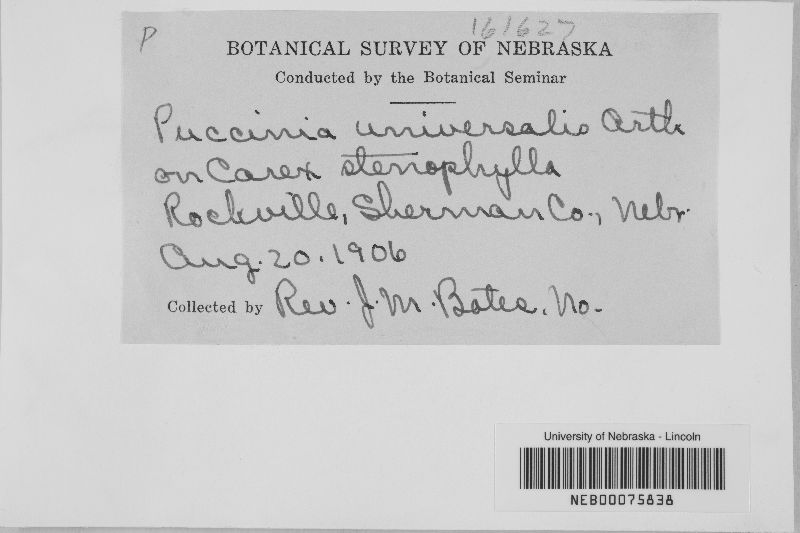 P
161627
BOTANICAL SURVEY OF NEBRASKA
Conducted by the Botanical Seminar
Puccinia universalis Arth
on Carex stenophylla
Rockville, Sherman Co., Nebr.
Aug. 20. 1906
Collected by Rev. J. M. Bates. No.
University of Nebraska - Lincoln
NEB00075838